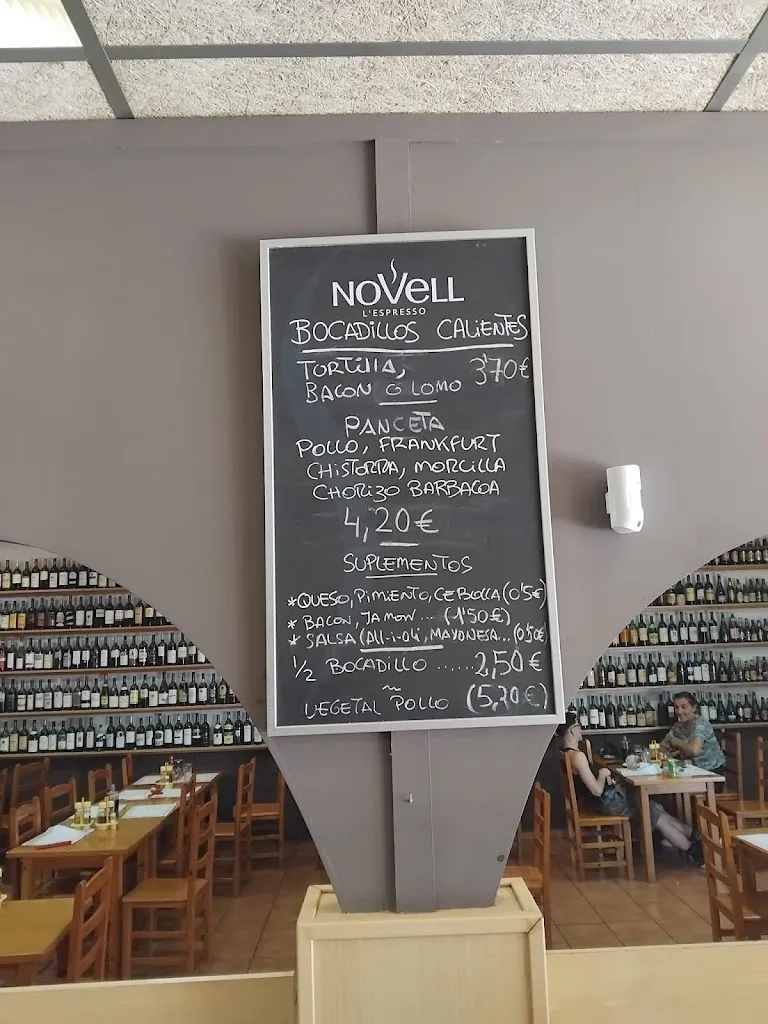 NOVELL
L'ESPRESSO
BOCADILLOS CALIENTES
TORTILLA, 3'70€
BACON O LOMO
PANCETA
POLLO, FRANKFURT
CHISTORRA, MORCILLA
CHORIZO BARBACOA
4,20€
SUPLEMENTOS
*QUESO, PIMIENTO, CEBOLLA (0'5€)
* BACON, JAMON... (1'50€)
* SALSA (All-i-oli, MAYONESA... (0'50€)
1/2 BOCADILLO ......2,50€
VEGETAL POLLO